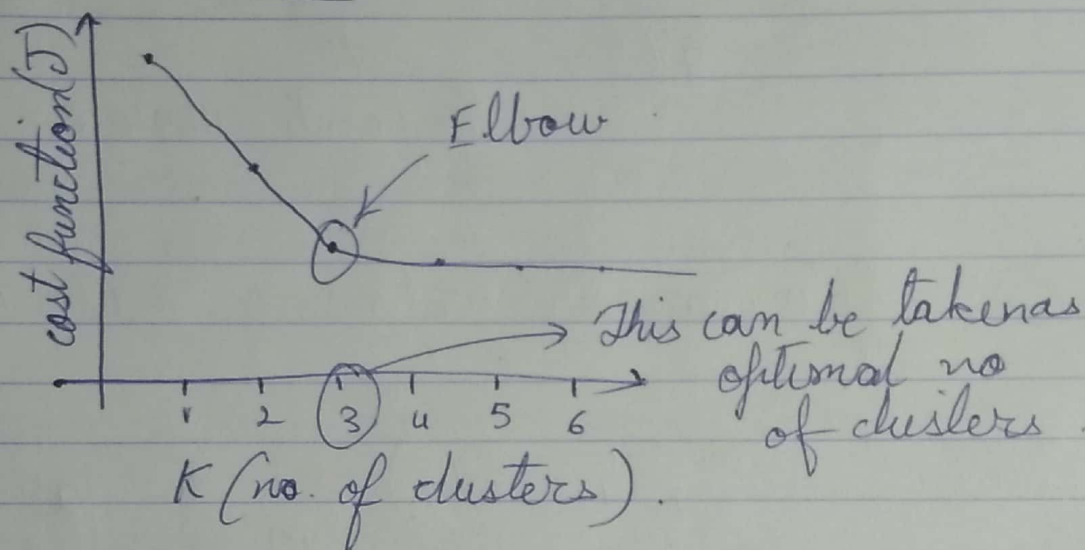 cost function(J)
Elbow
This can be taken as
optimal no
of clusters.
1 2 3 4 5 6
K (no. of clusters).